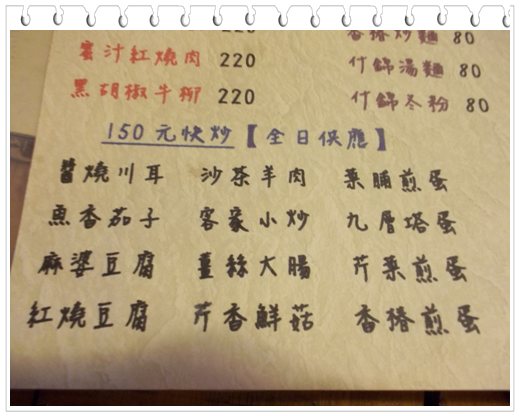 香椿炒麵 80
蜜汁紅燒肉 220 什錦湯麵 80
黑胡椒牛柳 220 什錦冬粉 80
150元快炒【全日供應】
醬燒川耳 沙茶羊肉 菜脯煎蛋
魚香茄子 客家小炒 九層塔蛋
麻婆豆腐 薑絲大腸 芹菜煎蛋
紅燒豆腐 芹香鮮菇 香椿煎蛋